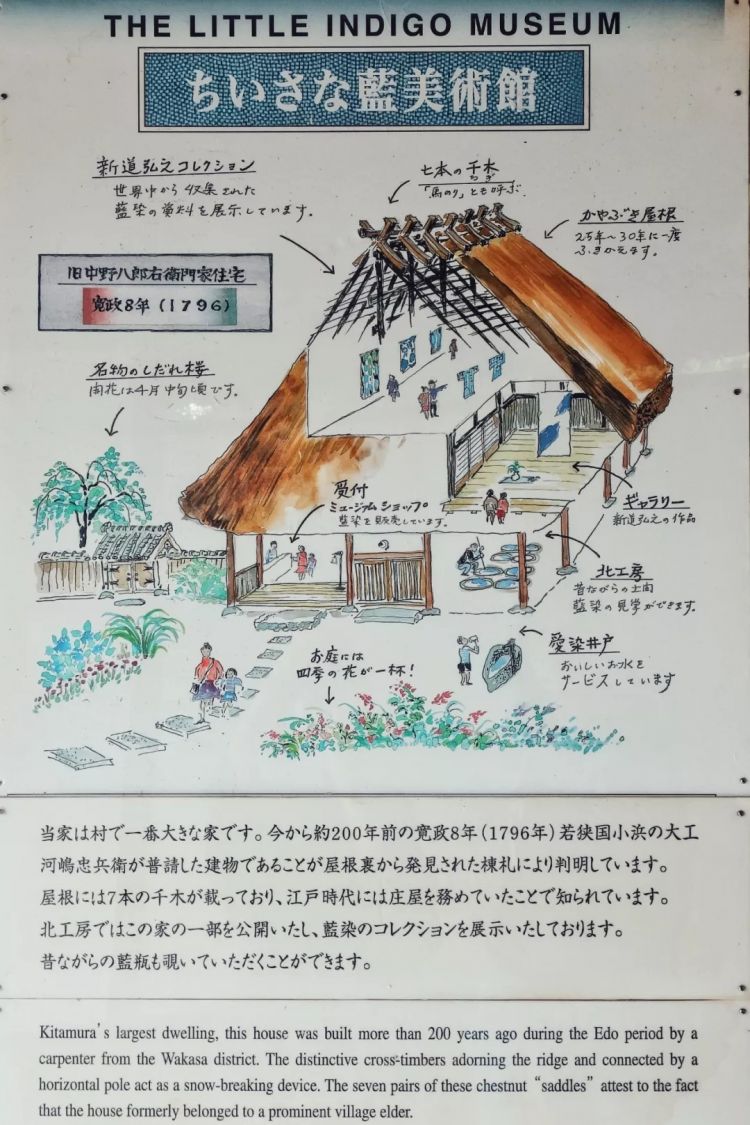 THE LITTLE INDIGO MUSEUM
ちいさな藍美術館
新道弘之コレクション
世界中から収集された
藍染の資料を展示しています。
七本の千木
ちぎ
「馬のり」とも呼ぶ。
かやぶき屋根
25年〜30年に一度
ふきかえます。
旧中野八郎右衛門家住宅
寛政8年(1796)
名物のしだれ桜
開花は4月中旬頃です。
受付
ミュージアムショップ
藍染を販売しています。
ギャラリー
新道弘之の作品
北工房
昔ながらの土間
藍染の見学ができます。
愛染井戸
おいしいお水を
サービスしています
お庭には
四季の花が一杯!
当家は村で一番大きな家です。今から約200年前の寛政8年(1796年)若狭国小浜の大工
河嶋忠兵衛が普請した建物であることが屋根裏から発見された棟札により判明しています。
屋根には7本の千木が載っており、江戸時代には庄屋を務めていたことで知られています。
北工房ではこの家の一部を公開いたし、藍染のコレクションを展示いたしております。
昔ながらの藍瓶も覗いていただくことができます。
Kitamura's largest dwelling, this house was built more than 200 years ago during the Edo period by a
carpenter from the Wakasa district. The distinctive cross-timbers adorning the ridge and connected by a
horizontal pole act as a snow-breaking device. The seven pairs of these chestnut "saddles" attest to the fact
that the house formerly belonged to a prominent village elder.